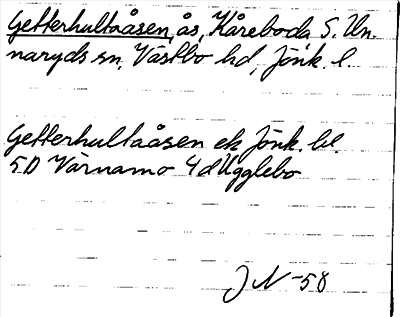 Getterhultaåsen, ås, Kåreboda S. Un-
naryds sn, Västbo hd, Jönk. l
Getterhultaåsen ek Jönk. bl.
5D Värnamo 4 d Ugglebo
JN -58